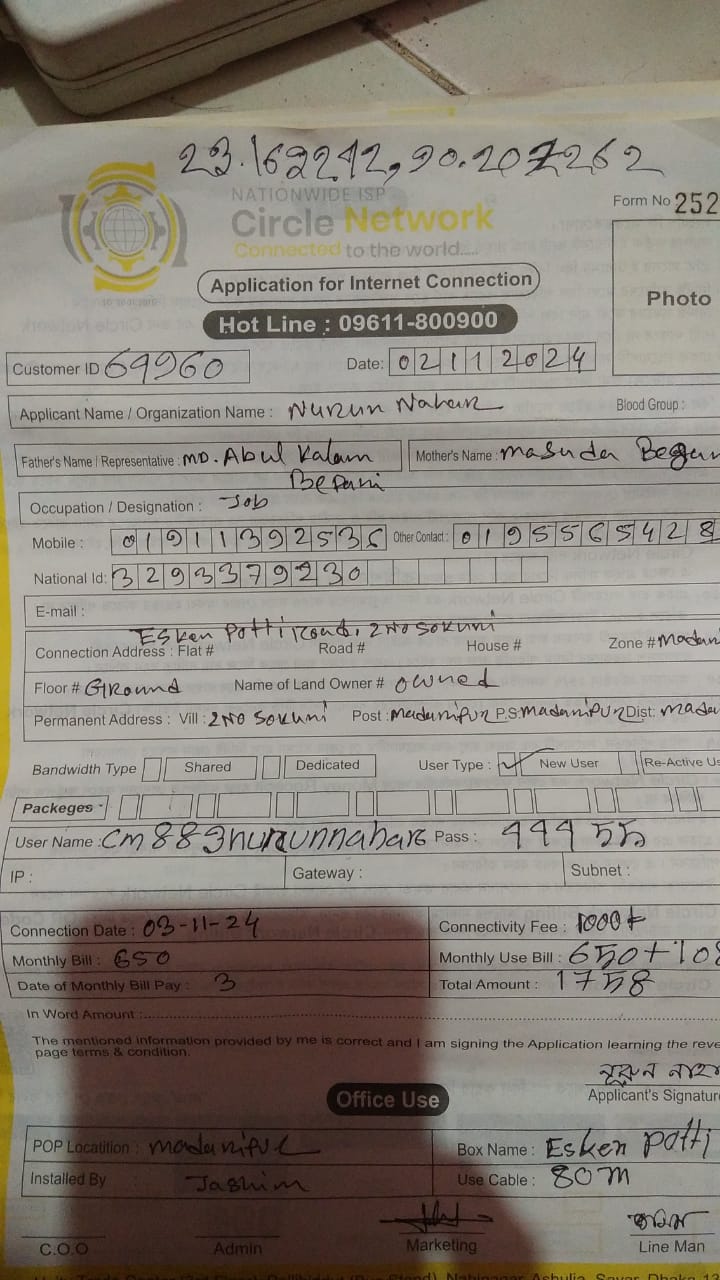 23.162212, 90.207262
NATIONWIDE ISP
Circle Network
Connected to the world.....
Form No 252
Application for Internet Connection
Photo
Hot Line : 09611-800900
Customer ID 69960 Date: 02112024
Applicant Name / Organization Name : Nurun Nahar Blood Group :
Father's Name / Representative : MD. Abul Kalam Mother's Name : Masuda Begam
Bepari
Occupation / Designation : Job
Mobile : 01911392536 Other Contact : 01955565428
National Id: 3293379230
E-mail :
Esken Potti Road, 2 No Sokuni
Connection Address : Flat # Road # House # Zone # Madari
Floor # Ground Name of Land Owner # owned
Permanent Address : Vill : 2 No Sokuni Post : Madaripur P.S: Madaripur Dist: Mada
Bandwidth Type Shared Dedicated User Type : New User Re-Active Us
Packeges -
User Name : cm889nurunnahar Pass : 444 55
IP : Gateway : Subnet :
Connection Date : 03-11-24 Connectivity Fee : 1000৳
Monthly Bill : 650 Monthly Use Bill : 650+108
Date of Monthly Bill Pay : 3 Total Amount : 1758
In Word Amount :
The mentioned information provided by me is correct and I am signing the Application learning the reve
page terms & condition.
নুরুন নাহা
Applicant's Signature
Office Use
POP Locatition : Madaripur Box Name : Esken Potti
Installed By Jashim Use Cable : 80M
C.O.O Admin Marketing Line Man